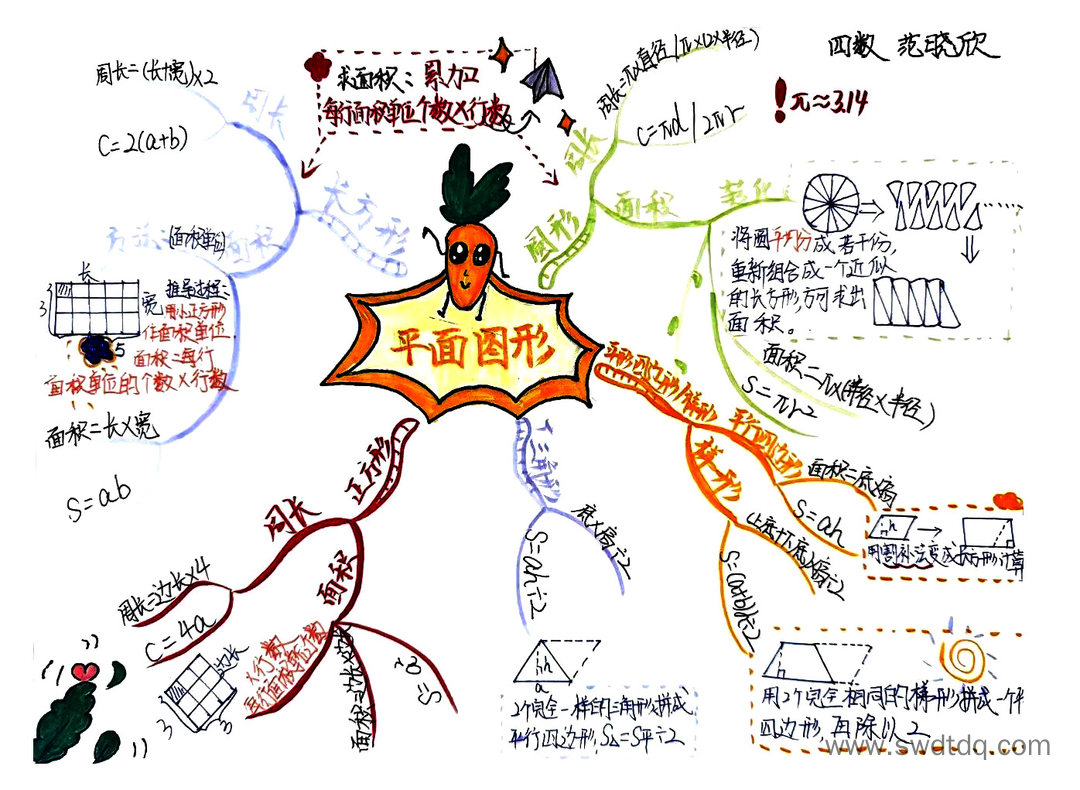 四数 范晓欣
π≈3.14
平面图形
求面积:累加
每行面积单位个数×行数
长方形
周长
周长=(长+宽)×2
C=2(a+b)
面积
面积单位
长
宽
3
5
推导过程:
用小正方形
作面积单位.
面积=每行
面积单位的个数×行数
面积=长×宽
S=ab
圆形
周长
周长=π×直径/π×2×半径
C=πd/2πr
面积
转化
将圆平均分成若干份,
重新组合成一个近似
的长方形,方可求出
面积。
面积=π×(半径×半径)
S=πr²
平行四边形/梯形
平行四边形
面积=底×高
S=ah
h
用割补法变成长方形计算
梯形
(上底+下底)×高÷2
S=(a+b)h÷2
h
用2个完全相同的梯形拼成一个平
四边形,再除以2
三角形
底×高÷2
S=ah÷2
h
h
a
2个完全一样的三角形拼成
平行四边形,S△=S平÷2
正方形
周长
周长=边长×4
C=4a
面积
边长
3
3
×行数
每行面积单位个数
面积=边长×边长
S=a²
www.swdtdq.com